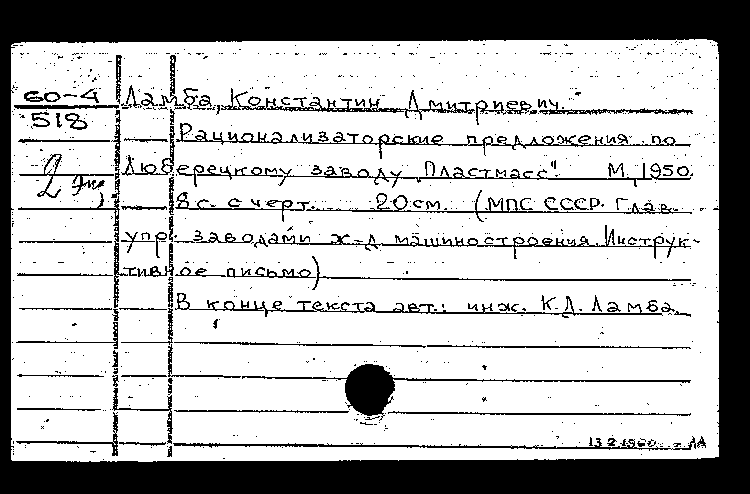 60-4 Ламба, Константин Дмитриевич.
518
Рационализаторские предложения по
2 экз. Люберецкому заводу "Пластмасс". М, 1950.
8 с. с черт. 20 см. (МПС СССР. Глав.
упр. заводами ж-д. машиностроения. Инструк-
тивное письмо)
В конце текста авт.: инж. К.Д. Ламба.
13 2 1960 - ЛА